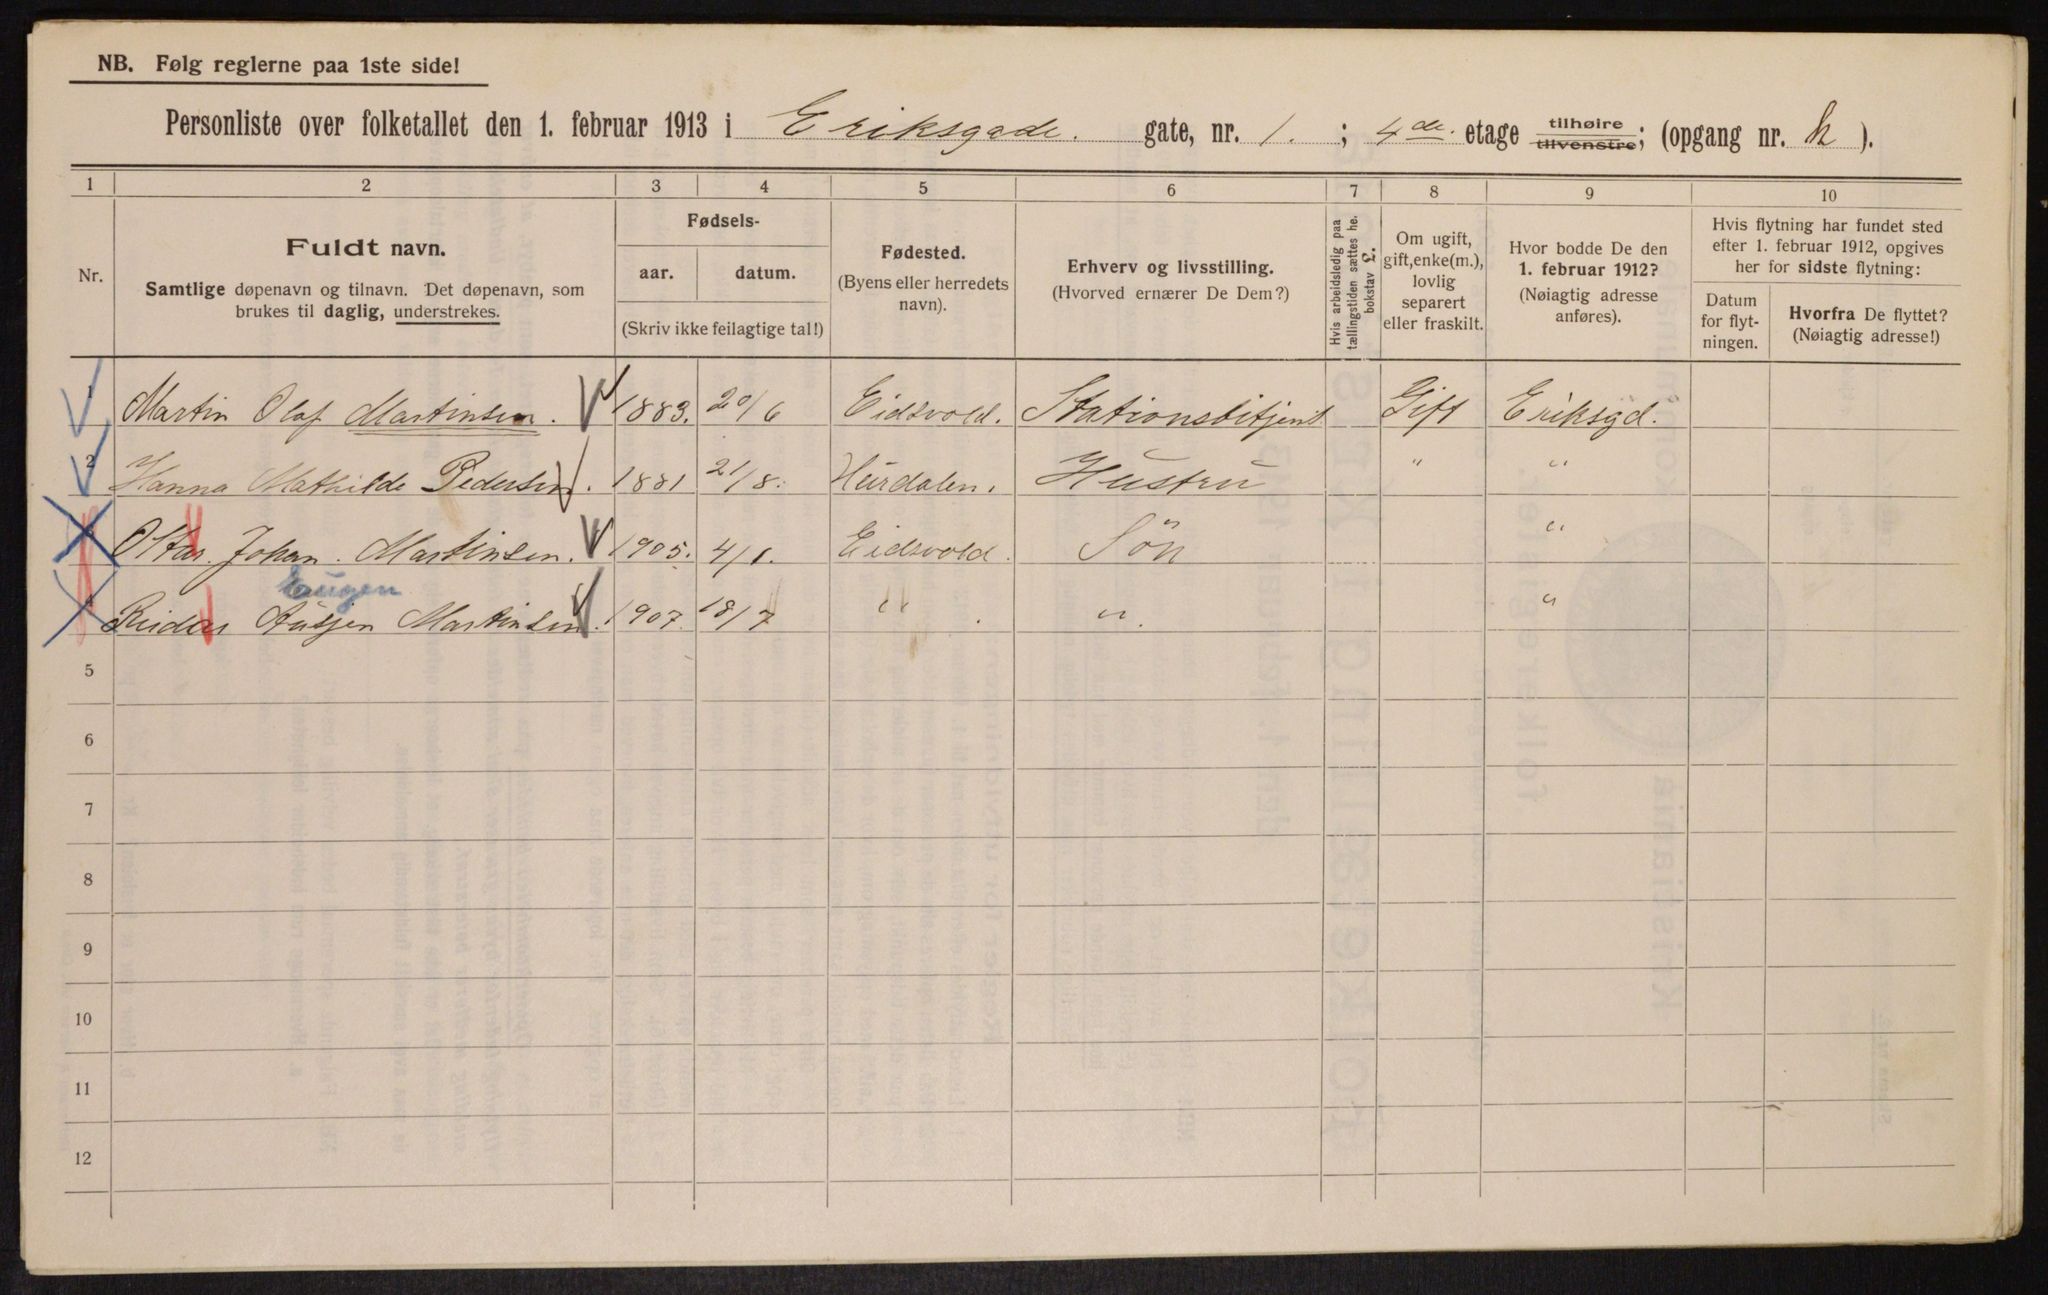 NB. Følg reglerne paa 1ste side!
Personliste over folketallet den 1. februar 1913 i Eriksgade. gate, nr. 1. ; 4de. etage tilhøire tilvenstre; (opgang nr. h ).
1 2 3 4 5 6 7 8 9 10
Nr.
Fuldt navn.
Samtlige døpenavn og tilnavn. Det døpenavn, som
brukes til daglig, understrekes.
Fødsels-
aar. datum.
(Skriv ikke feilagtige tal!)
Fødested.
(Byens eller herredets
navn).
Erhverv og livsstilling.
(Hvorved ernærer De Dem?)
Hvis arbeidsledig paa
tællingstiden sættes he.
bokstav L.
Om ugift,
gift, enke(m.),
lovlig
separert
eller fraskilt.
Hvor bodde De den
1. februar 1912?
(Nøiagtig adresse
anføres).
Hvis flytning har fundet sted
efter 1. februar 1912, opgives
her for sidste flytning:
Datum
for flyt-
ningen.
Hvorfra De flyttet?
(Nøiagtig adresse!)
1 Martin Olaf Martinsen. 1883. 20/6 Eidsvold. Stationsbitjent Gift Eriksgd.
2 Hanna Mathilde Pedersen. 1881 21/8. Hurdalen. Hustru " "
3 Johan. Martinsen. 1905. 4/1. Eidsvold. Sön "
Eugen
4 Reidar Martinsen. 1907. 18/7 " ". "
5
6
7
8
9
10
11
12